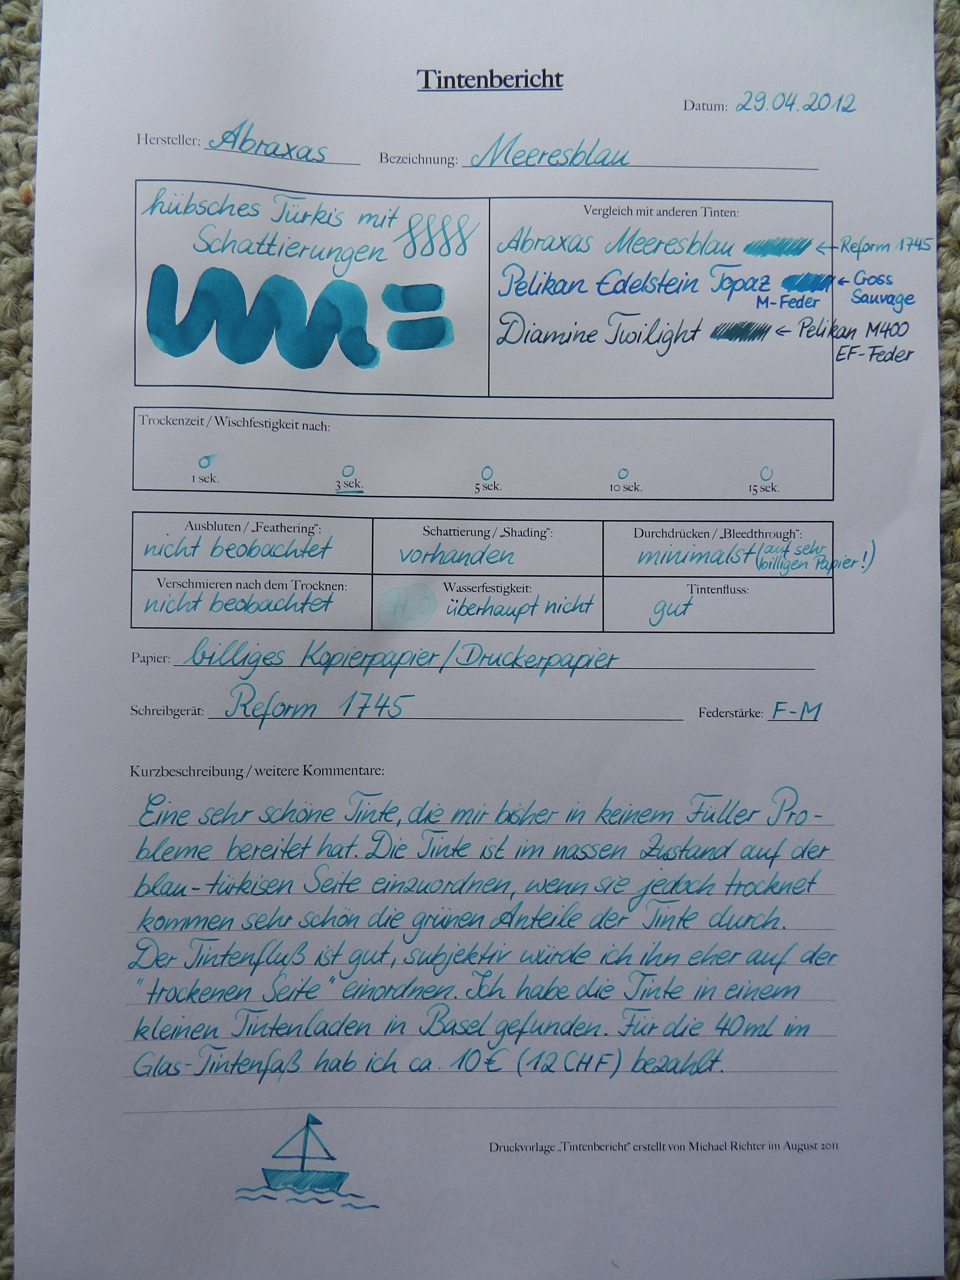 Tintenbericht
Datum: 29.04.2012
Hersteller: Abraxas Bezeichnung: Meeresblau
hübsches Türkis mit
Schattierungen
Vergleich mit anderen Tinten:
Abraxas Meeresblau ← Reform 1745
Pelikan Edelstein Topaz ← Gross
M-Feder Sauvage
Diamine Twilight ← Pelikan M400
EF-Feder
Trockenzeit / Wischfestigkeit nach:
1 sek. 3 sek. 5 sek. 10 sek. 15 sek.
Ausbluten / „Feathering": Schattierung / „Shading": Durchdrücken / „Bleedthrough":
nicht beobachtet vorhanden minimalst (auf sehr
billigen Papier!)
Verschmieren nach dem Trocknen: Wasserfestigkeit: Tintenfluss:
nicht beobachtet überhaupt nicht gut
Papier: billiges Kopierpapier/Druckerpapier
Schreibgerät: Reform 1745 Federstärke: F-M
Kurzbeschreibung / weitere Kommentare:
Eine sehr schöne Tinte, die mir bisher in keinem Füller Pro-
bleme bereitet hat. Die Tinte ist im nassen Zustand auf der
blau-türkisen Seite einzuordnen, wenn sie jedoch trocknet
kommen sehr schön die grünen Anteile der Tinte durch.
Der Tintenfluß ist gut, subjektiv würde ich ihn eher auf der
"trockenen Seite" einordnen. Ich habe die Tinte in einem
kleinen Tintenladen in Basel gefunden. Für die 40ml im
Glas-Tintenfaß hab ich ca. 10€ (12 CHF) bezahlt.
Druckvorlage „Tintenbericht" erstellt von Michael Richter im August 2011